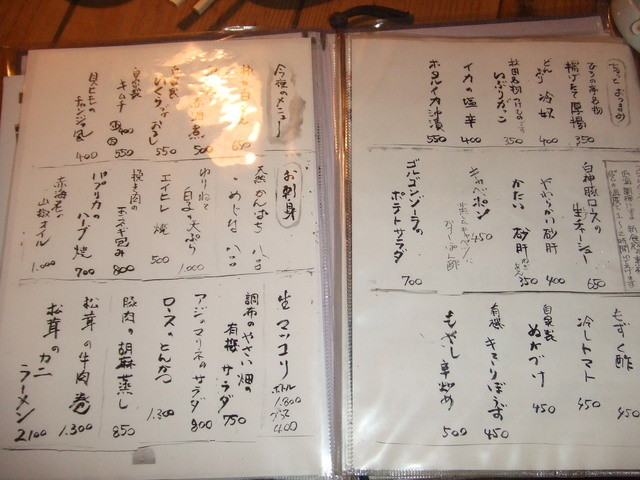 ちょっとおつまみ
ひろの亭名物
揚げたて厚揚 350
冷奴 400
秋田名物
いぶりがっこ 350
イカの塩辛 400
ホタルイカ沖漬 550
白神豚ロースの
生ネーショー 650
やわらかい砂肝 400
かたい砂肝 350
キャベポン 450
ゴルゴンゾーラの
ポテトサラダ 700
もずく酢 450
冷しトマト 450
自家製
ぬかづけ 450
有機きゅうりぼうず 450
もやし辛炒め 500
今夜のメニュー
650
500
いくらおろし 550
自家製
キムチ 550
貝ヒモの
チャンジャ風 400
お刺身
天然かんぱち 八〇〇
めじな 八〇〇
ゆりねと
白子の天ぷら 1.000
エイヒレ焼 500
挽き肉の
玉ネギ包み 800
パプリカの
ハーブ焼 700
赤海老の
山椒オイル 1.000
生マッコリ
ボトル 1.800
グラス 400
調布のやさい畑の
有機サラダ 750
アジのマリネのサラダ 800
ロースのとんかつ 1.300
豚肉の胡麻蒸し 850
松茸の牛肉巻 1.300
松茸のカニ
ラーメン 2100